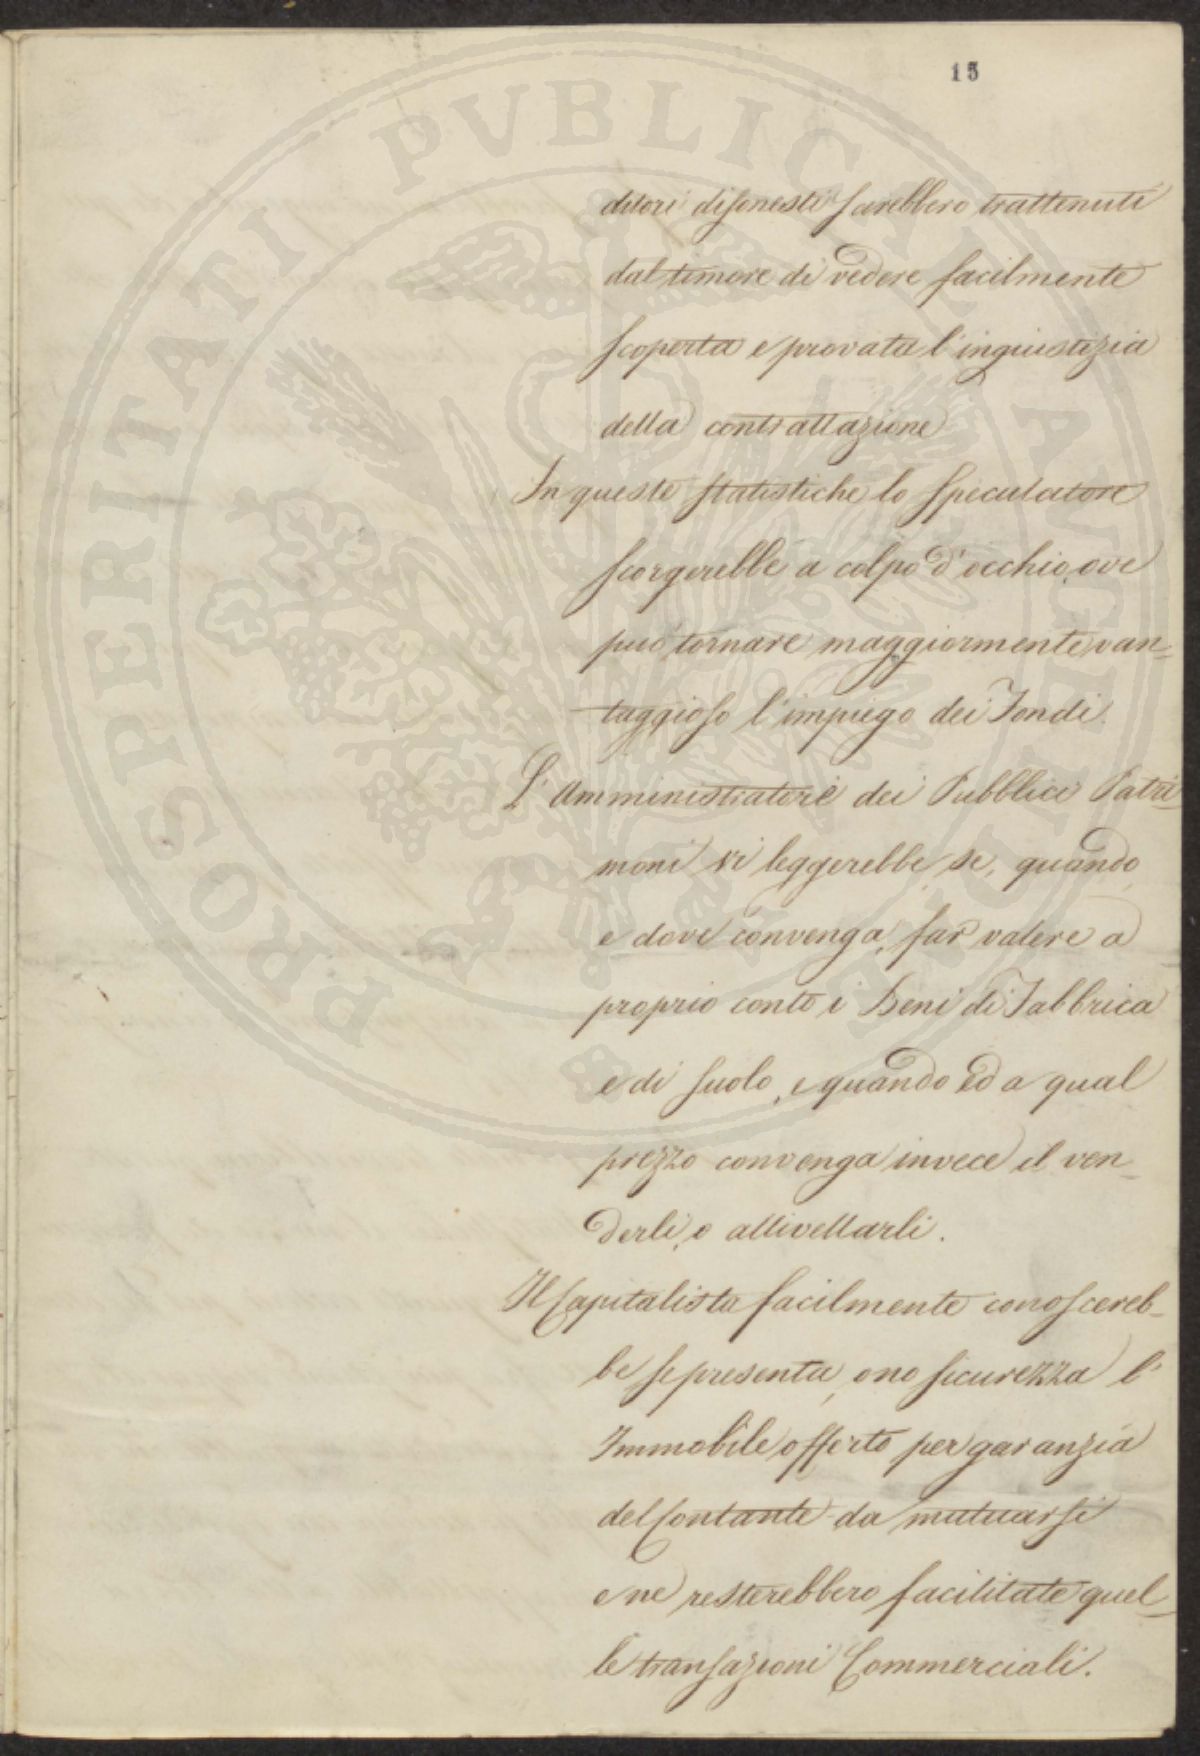 15
PROSPERITATI PVBLICAE AVGENDAE
ditori disonesti sarebbero trattenuti
dal timore di vedere facilmente
scoperta e provata l'ingiustizia
della contrattazione
In queste statistiche lo speculatore
scorgerebbe a colpo d'occhio, ove
può tornare maggiormente van-
taggioso l'impiego dei Fondi.
L'Amministratore dei Pubblici Patri-
moni vi leggerebbe, se, quando,
e dove convenga, far valere a
proprio conto i Beni di Fabbrica
e di suolo, e quando ed a qual
prezzo convenga invece il ven-
derli, o allivellarli.
Il Capitalista facilmente conoscereb-
be se presenta, o no sicurezza l'
Immobile offerto per garanzia
del Contante da mutuarsi
e ne resterebbero facilitate quel-
le transazioni Commerciali.